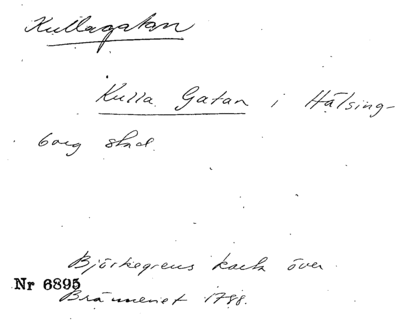 Kullagatan
Kulla Gatan i Hälsing-
borg stad.
Björkegrens karta över
Nr 6895
Bränneriet 1788.